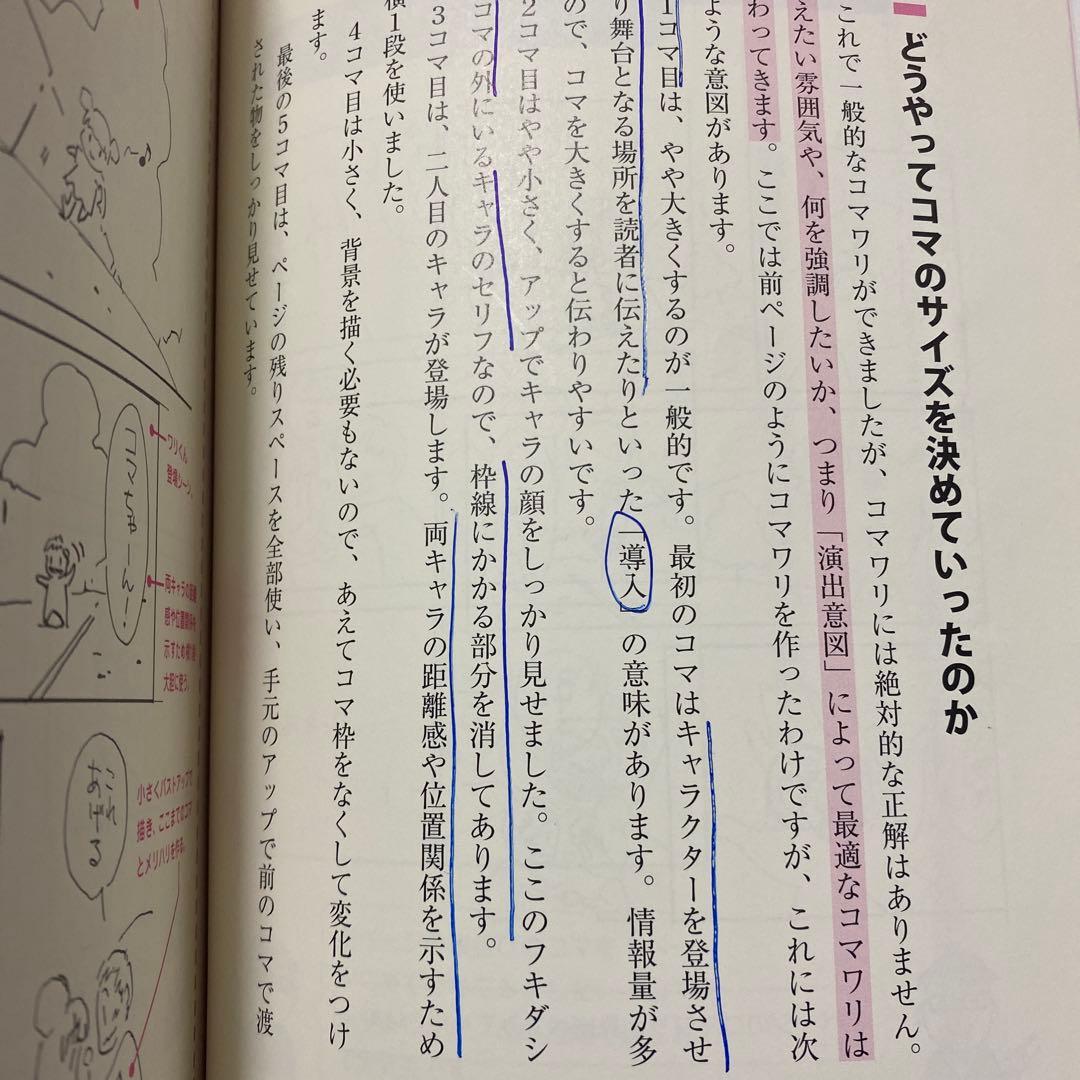 どうやってコマのサイズを決めていったのか
これで一般的なコマワリができましたが、コマワリには絶対的な正解はありません。
えたい雰囲気や、何を強調したいか、つまり「演出意図」によって最適なコマワリは
わってきます。ここでは前ページのようにコマワリを作ったわけですが、これには次
ような意図があります。
1コマ目は、やや大きくするのが一般的です。最初のコマはキャラクターを登場させ
り舞台となる場所を読者に伝えたりといった「導入」の意味があります。情報量が多
ので、コマを大きくすると伝わりやすいです。
2コマ目はやや小さく、アップでキャラの顔をしっかり見せました。ここのフキダシ
コマの外にいるキャラのセリフなので、枠線にかかる部分を消してあります。
3コマ目は、二人目のキャラが登場します。両キャラの距離感や位置関係を示すため
横1段を使いました。
4コマ目は小さく、背景を描く必要もないので、あえてコマ枠をなくして変化をつけ
ます。
最後の5コマ目は、ページの残りスペースを全部使い、手元のアップで前のコマで渡
された物をしっかり見せています。
ワりくん
登場シーン。
コマちゃーん！
両キャラの距離
感や位置関係を
示すため横1段
大胆に使う。
これ
あげーる
小さくバストアップで
描き、ここまでのコマ
とメリハリを作る。